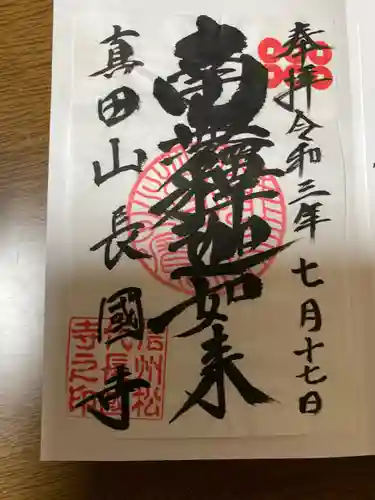 奉拝 令和三年 七月十七日
南無釋迦如来
真田山 長國寺
信州松
代長國
寺之印